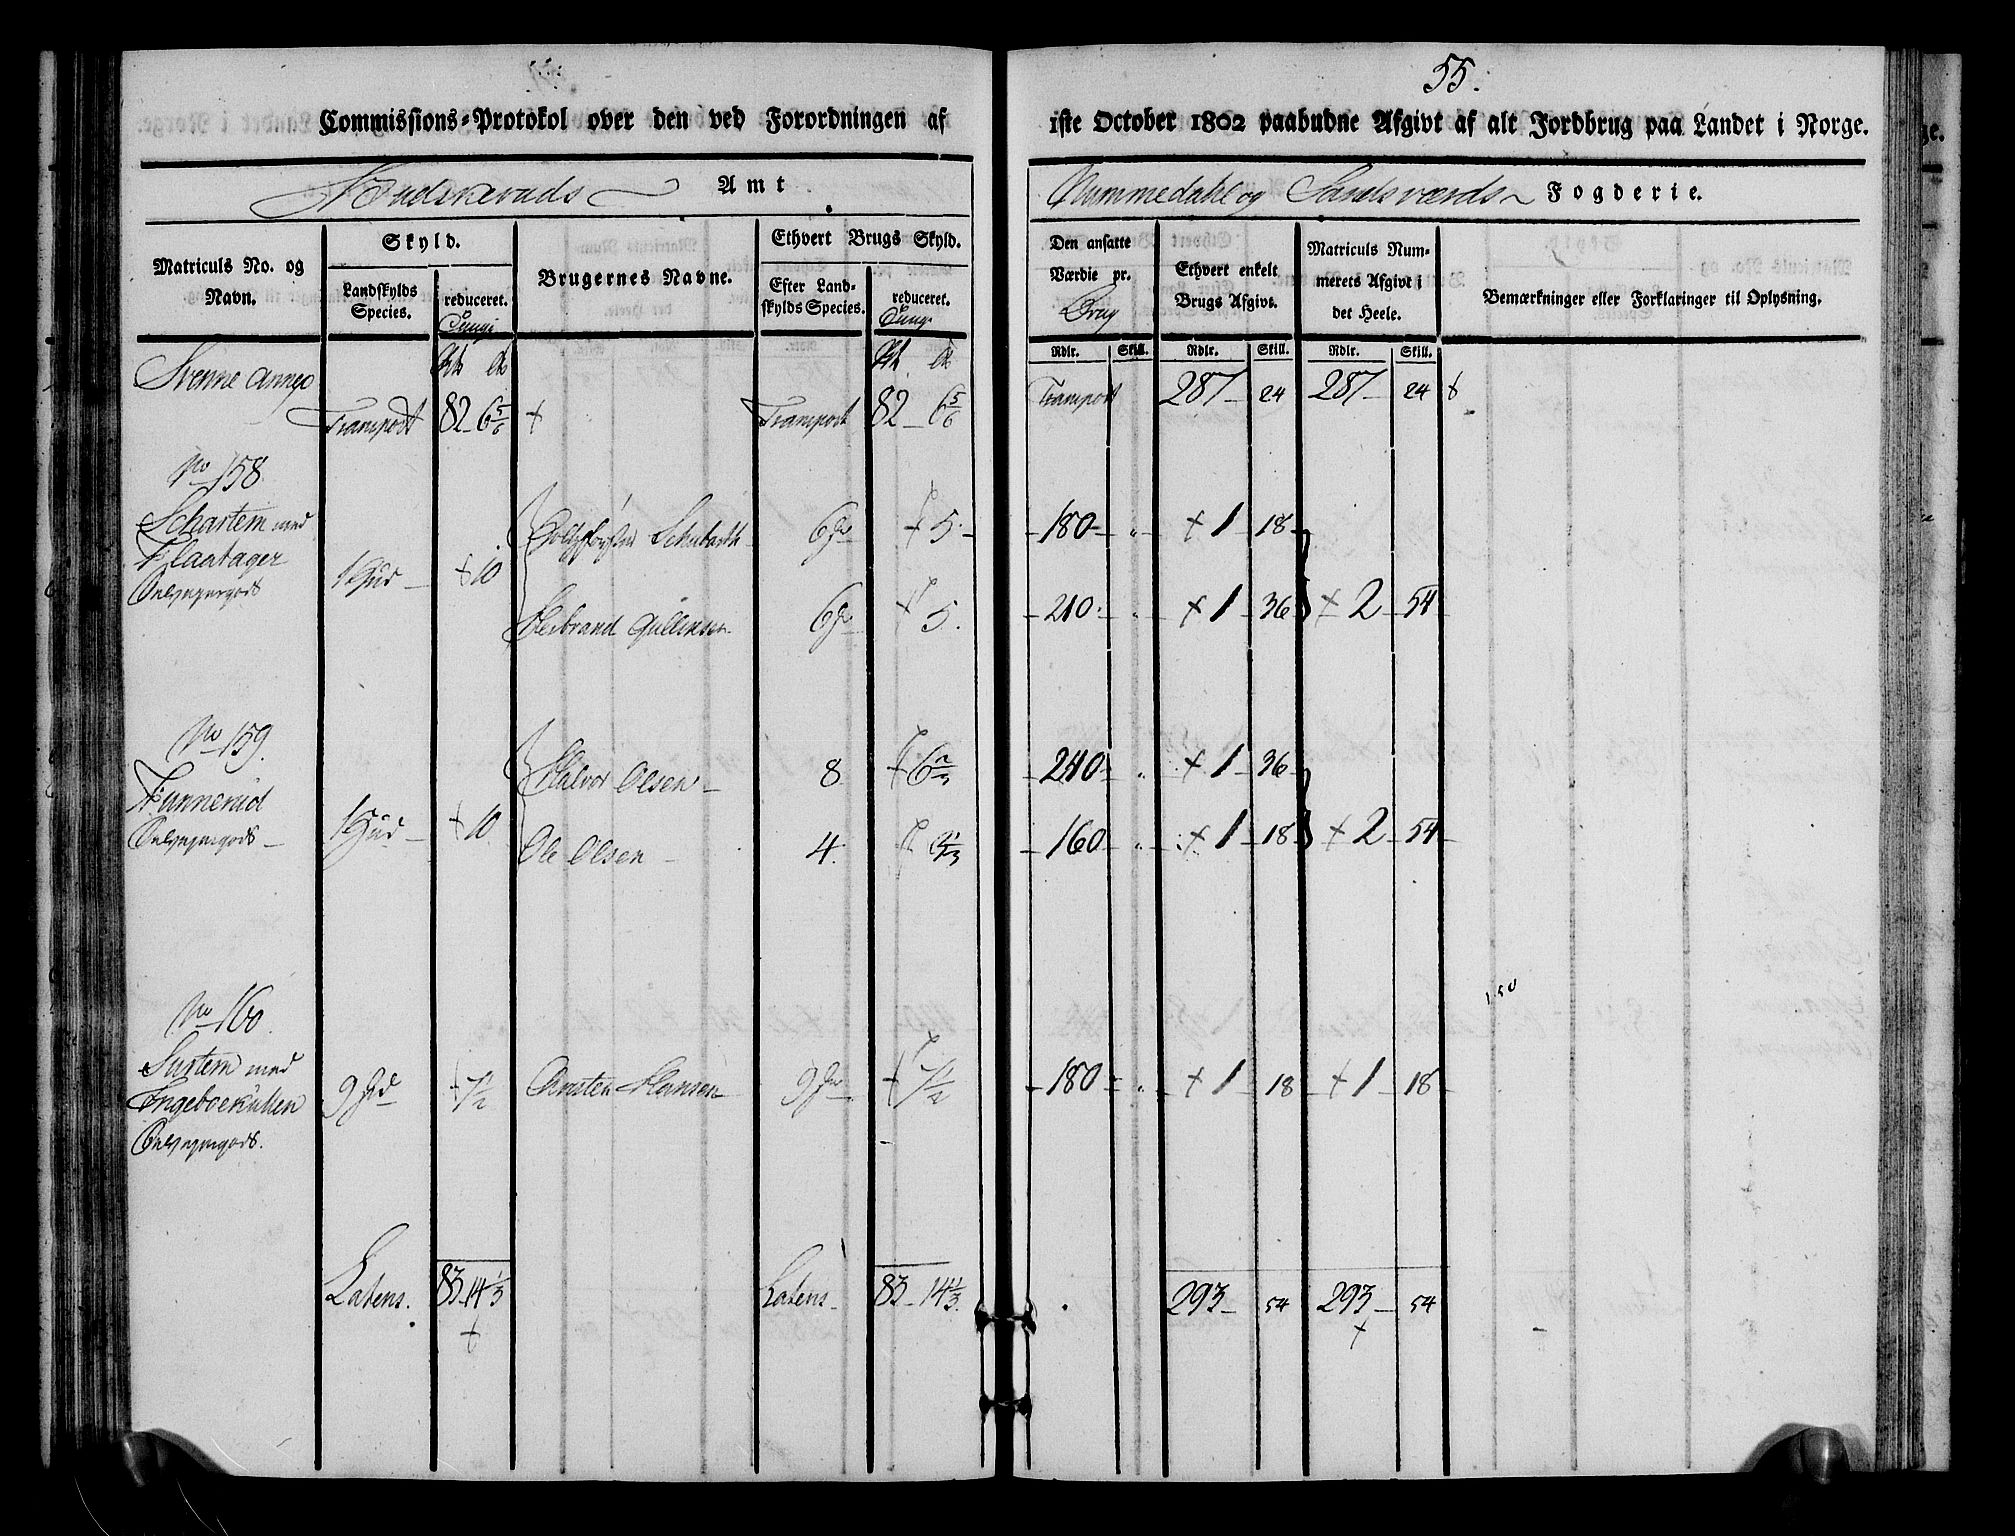 55.
Commissions-Protokol over den ved Forordningen af 1ste October 1802 paabudne Afgivt af alt Jordbrug paa Landet i Norge.
Budskeruds Amt
Nummedahl og Sandsværds Fogderie.
Matriculs No. og Navn.
Skyld.
Landskylds Species.
reduceret. Tunge
Brugernes Navne.
Ethvert Brugs Skyld.
Efter Landskylds Species.
reduceret. Tunge
Den ansatte Værdie pr. Brug
Ethvert enkelt Brugs Afgivt.
Matriculs Nummerets Afgivt i det Heele.
Bemærkninger eller Forklaringer til Oplysning.
Rdlr. Skill. Rdlr. Skill. Rdlr. Skill.
Svenne Annex
Transport 82 - 6 5/6 + Transport 82 - 6 5/6 Transport 287 - 24 287 - 24
No 158
Schartem med
Flaatager
1 Hud - + 10
Schubarth 6 + 5. - 180 - „ - + 1 - 18 -
Herbrand Gullensen 6 + 5. - 210 - „ - + 1 - 36 + 2 - 54 -
No 159.
1 Hud - + 10
Halvor Olsen - 8 + 6 2/3 - 240 - „ - + 1 - 36 -
Ole Olsen - 4. 3 1/3 - 160 - „ - + 1 - 18 + 2 - 54 -
No 160.
Surtem med
Ingeboekullen
9 + 7 1/2 Carsten Hansen 9 + 7 1/2 - 180 - „ - + 1 - 18 - + 1 - 18
150
Latens. 83 - 14 1/3 Latens - 83 - 14 1/3. 293 - 54 293 - 54